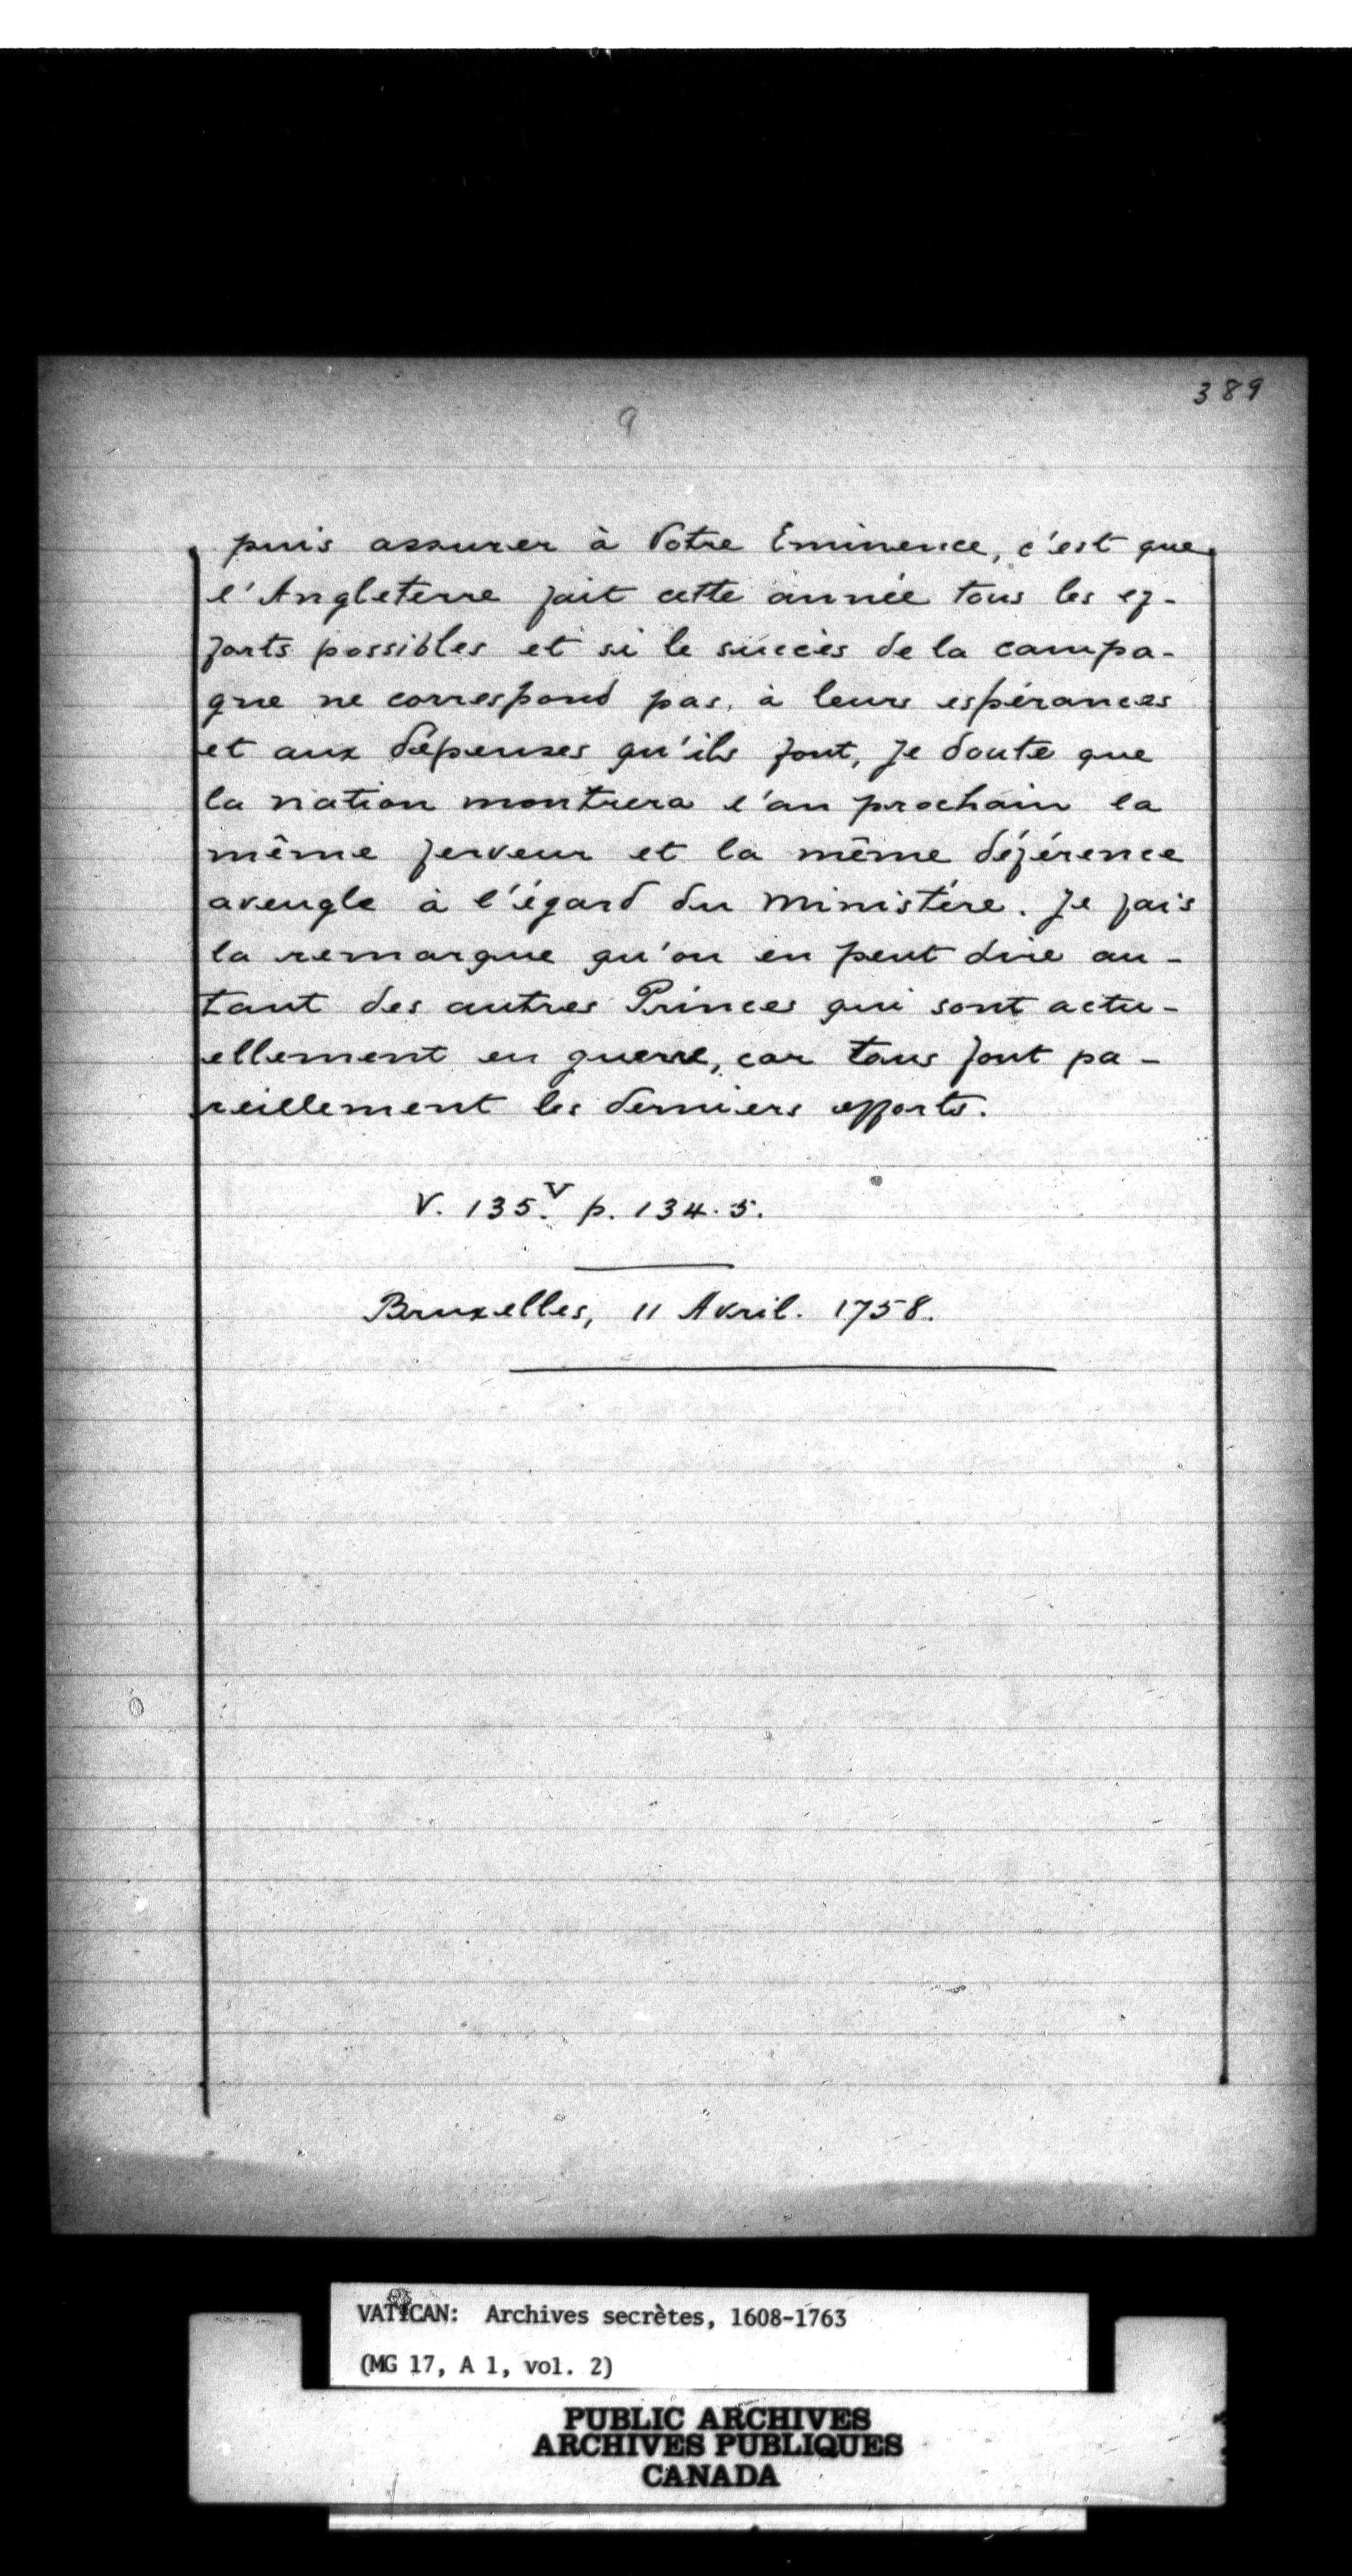 389
9
puis assurer à Votre Eminence, c'est que
l'Angleterre fait cette année tous les ef-
forts possibles et si le succès de la campa-
gne ne correspond pas, à leurs espérances
et aux dépenses qu'ils font, je doute que
la nation montrera l'an prochain la
même ferveur et la même déférence
aveugle à l'égard du ministère. Je fais
la remarque qu'on en peut dire au-
tant des autres Princes qui sont actu-
ellement en guerre, car tous font pa-
reillement les derniers efforts.
V. 135.V p. 134.5.
Bruxelles, 11 Avril. 1758.
VATICAN: Archives secrètes, 1608-1763
(MG 17, A 1, vol. 2)
PUBLIC ARCHIVES
ARCHIVES PUBLIQUES
CANADA